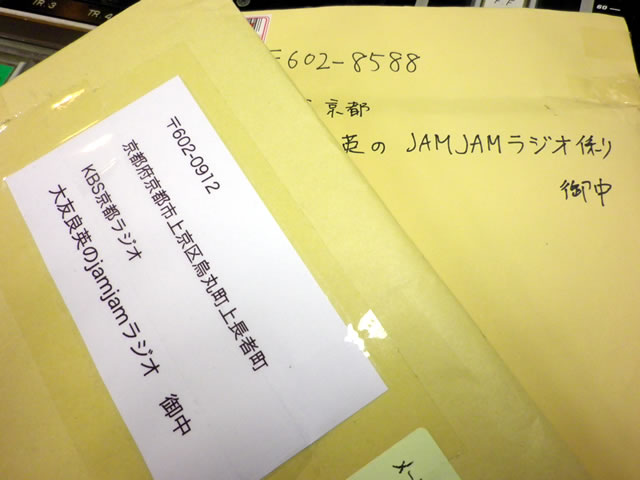 TR 3
TR 4
〒602-0912
京都府京都市上京区烏丸町上長者町
KBS京都ラジオ
大友良英のjamjamラジオ 御中
〒602-8588
京都
英の JAMJAMラジオ係り
御中
メー